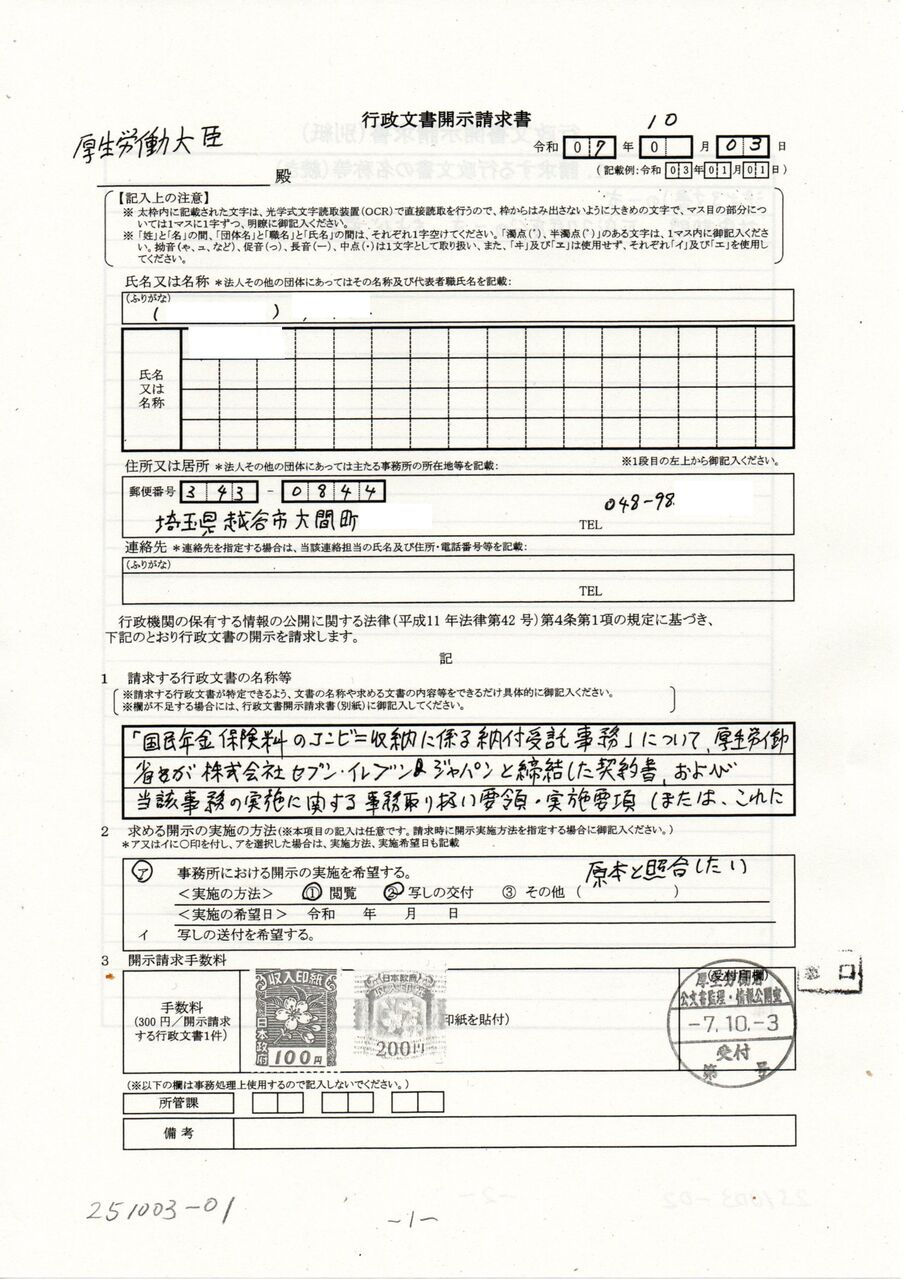 行政文書開示請求書
厚生労働大臣 殿
10
令和 07 年 0 月 03 日
(記載例:令和 03年01月01日)
【記入上の注意】
※ 太枠内に記載された文字は、光学式文字読取装置(OCR)で直接読取を行うので、枠からはみ出さないように大きめの文字で、マス目の部分につ
いては1マスに1字ずつ、明瞭に御記入ください。
※ 「姓」と「名」の間、「団体名」と「職名」と「氏名」の間は、それぞれ1字空けてください。「濁点(゛)、半濁点(゜)」のある文字は、1マス内に御記入くださ
い。拗音(ゃ、ュ、など)、促音(っ)、長音(ー)、中点(・)は1文字として取り扱い、また、「ヰ」及び「ヱ」は使用せず、それぞれ「イ」及び「エ」を使用し
てください。
氏名又は名称 *法人その他の団体にあってはその名称及び代表者職氏名を記載:
(ふりがな)
( )
氏名
又は
名称
住所又は居所 *法人その他の団体にあっては主たる事務所の所在地等を記載: ※1段目の左上から御記入ください。
郵便番号 343 - 0844
埼玉県越谷市大間町 TEL 048-98
連絡先 *連絡先を指定する場合は、当該連絡担当の氏名及び住所・電話番号等を記載:
(ふりがな)
TEL
行政機関の保有する情報の公開に関する法律(平成11年法律第42号)第4条第1項の規定に基づき、
下記のとおり行政文書の開示を請求します。
記
1 請求する行政文書の名称等
※請求する行政文書が特定できるよう、文書の名称や求める文書の内容等をできるだけ具体的に御記入ください。
※欄が不足する場合には、行政文書開示請求書(別紙)に御記入してください。
「国民年金保険料のコンビニ収納に係る納付受託事務」について、厚生労働
省が株式会社セブン‐イレブン・ジャパンと締結した契約書、および
当該事務の実施に関する事務取り扱い要領・実施要項(または、これに
2 求める開示の実施の方法(※本項目の記入は任意です。請求時に開示実施方法を指定する場合に御記入ください。)
*ア又はイに○印を付し、アを選択した場合は、実施方法、実施希望日も記載
ア 事務所における開示の実施を希望する。 原本と照合したい
<実施の方法> ① 閲覧 ② 写しの交付 ③ その他( )
<実施の希望日> 令和 年 月 日
イ 写しの送付を希望する。
3 開示請求手数料
手数料
(300円/開示請求
する行政文書1件)
収入印紙
日本政府
100円
日本政府
200円
印紙を貼付)
(受付印欄)
厚生労働省
公文書監理・情報公開室
-7.10.-3
受付
第 号
窓口
(※以下の欄は事務処理上使用するので記入しないでください。)
所管課
備考
251003-01
-1-